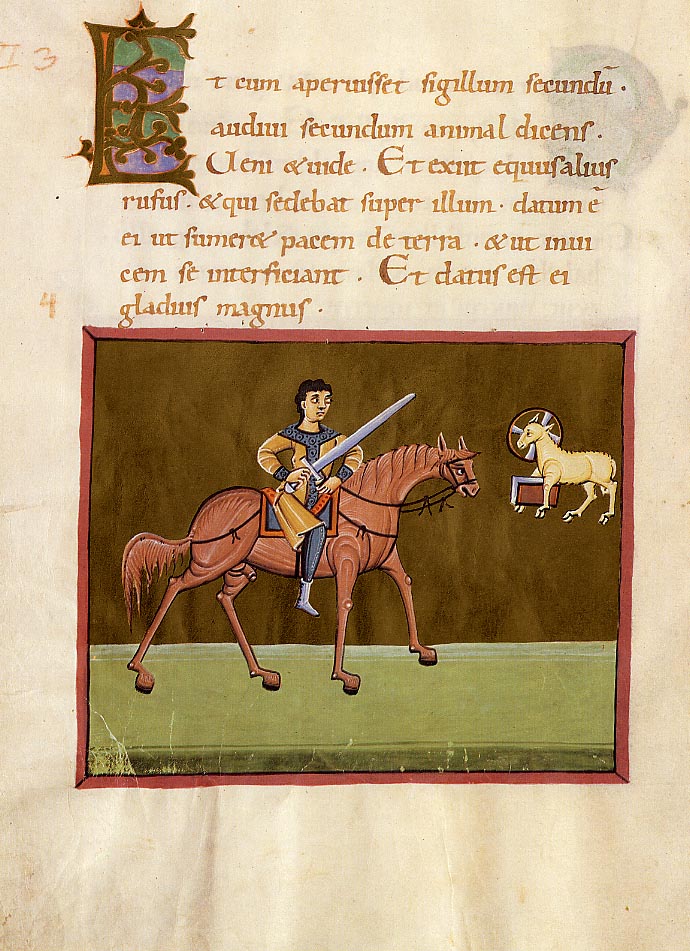 I 3
Et cum aperuisset sigillum secundū ·
audiui secundum animal dicens ·
Ueni &uide · Et exiit equusalius
rufus · &qui sedebat super illum · datum ē
ei ut sumer& pacem de terra · &ut inui
cem se interficiant · Et datus est ei
4
gladius magnus ·